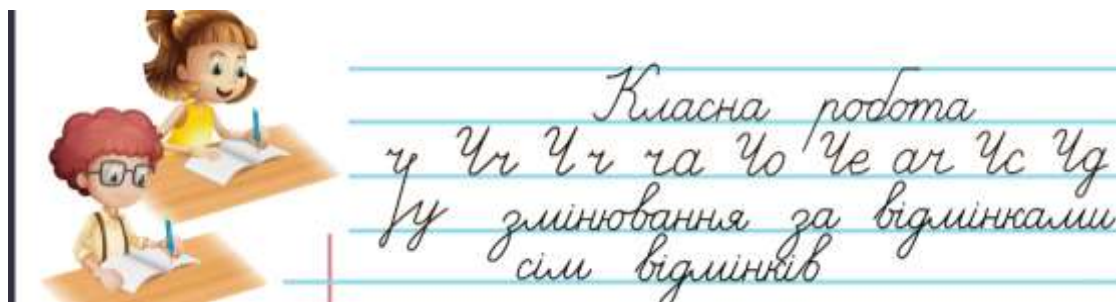 Класна робота
ч Чч Чч ча Чо Че ач Чс Чд
у змінювання за відмінками
сім відмінків